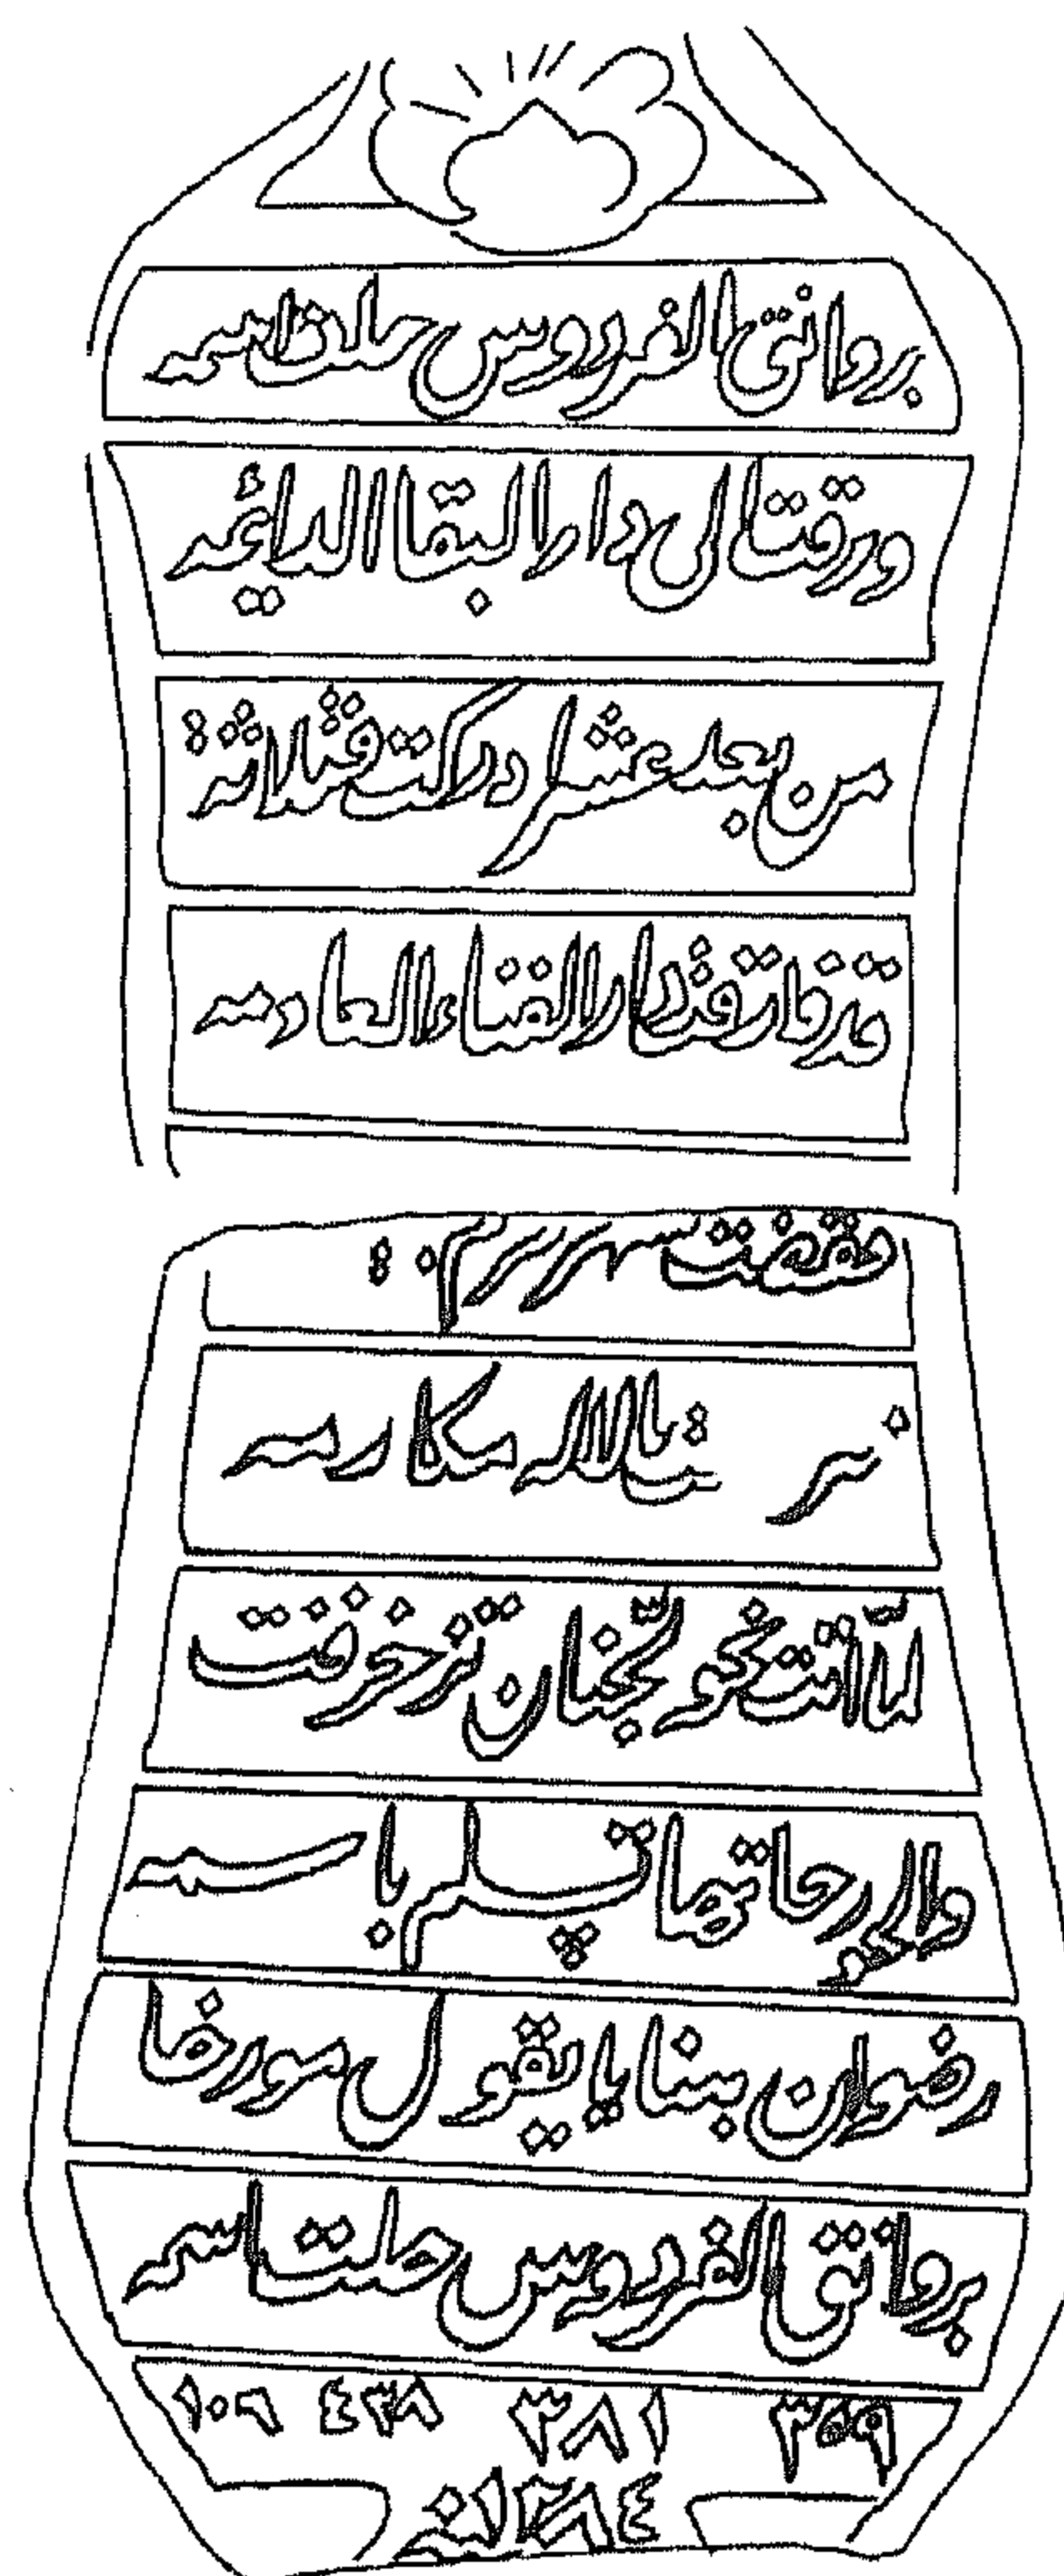 بروانق الفردوس حلت اسمه
ورقت الى دار البقا الدائمه
من بعد عشر ادركت فثلاثة
قد فارقت دار الفناء العادمه
فقضت
الاله مكارمه
لمّا اتت نحو الجنان تزخرفت
والحور حاتها تسلم باسمه
رضوان يقول مورخا
بروانق الفردوس حلت اسمه
٣٥٩ ٣٨١ ٤٣٨ ١٠٦
سنه ١٢٨٤